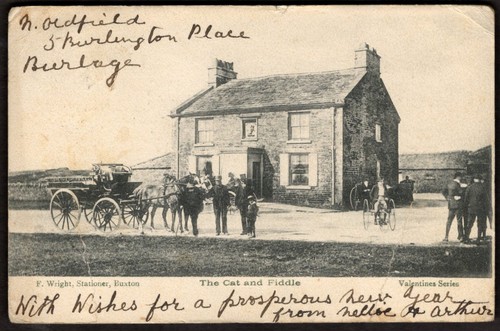 N. Oldfield
5 Burlington Place
Burbage
F. Wright, Stationer, Buxton
The Cat and Fiddle
Valentines Series
With Wishes for a prosperous new Year
from Nellie & Arthur